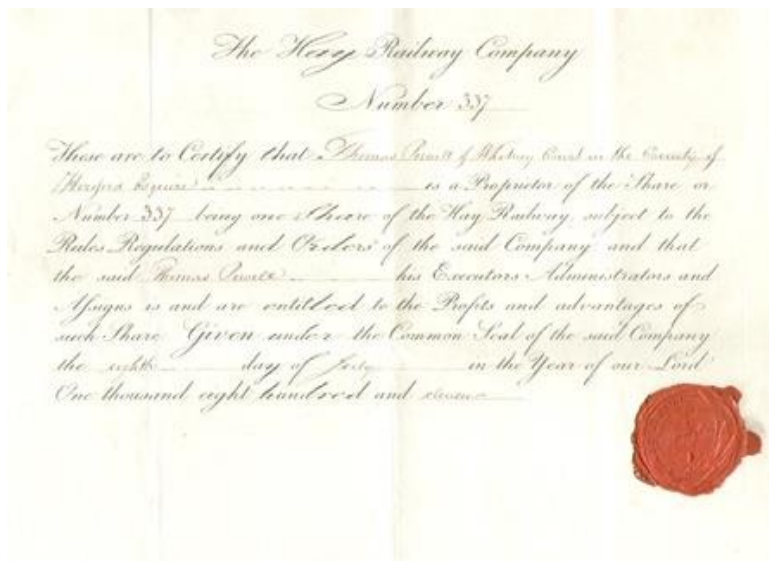 The Hay Railway Company
Number 337
These are to Certify that Thomas Powell of Whitney Court in the County of
Hereford Esquire is a Proprietor of the Share or
Number 337 being one Share of the Hay Railway, subject to the
Rules Regulations and Orders of the said Company and that
the said Thomas Powell his Executors Administrators and
Assigns is and are entitled to the Profits and advantages of
such Share Given under the Common Seal of the said Company
the eighth day of July in the Year of our Lord
One thousand eight hundred and eleven